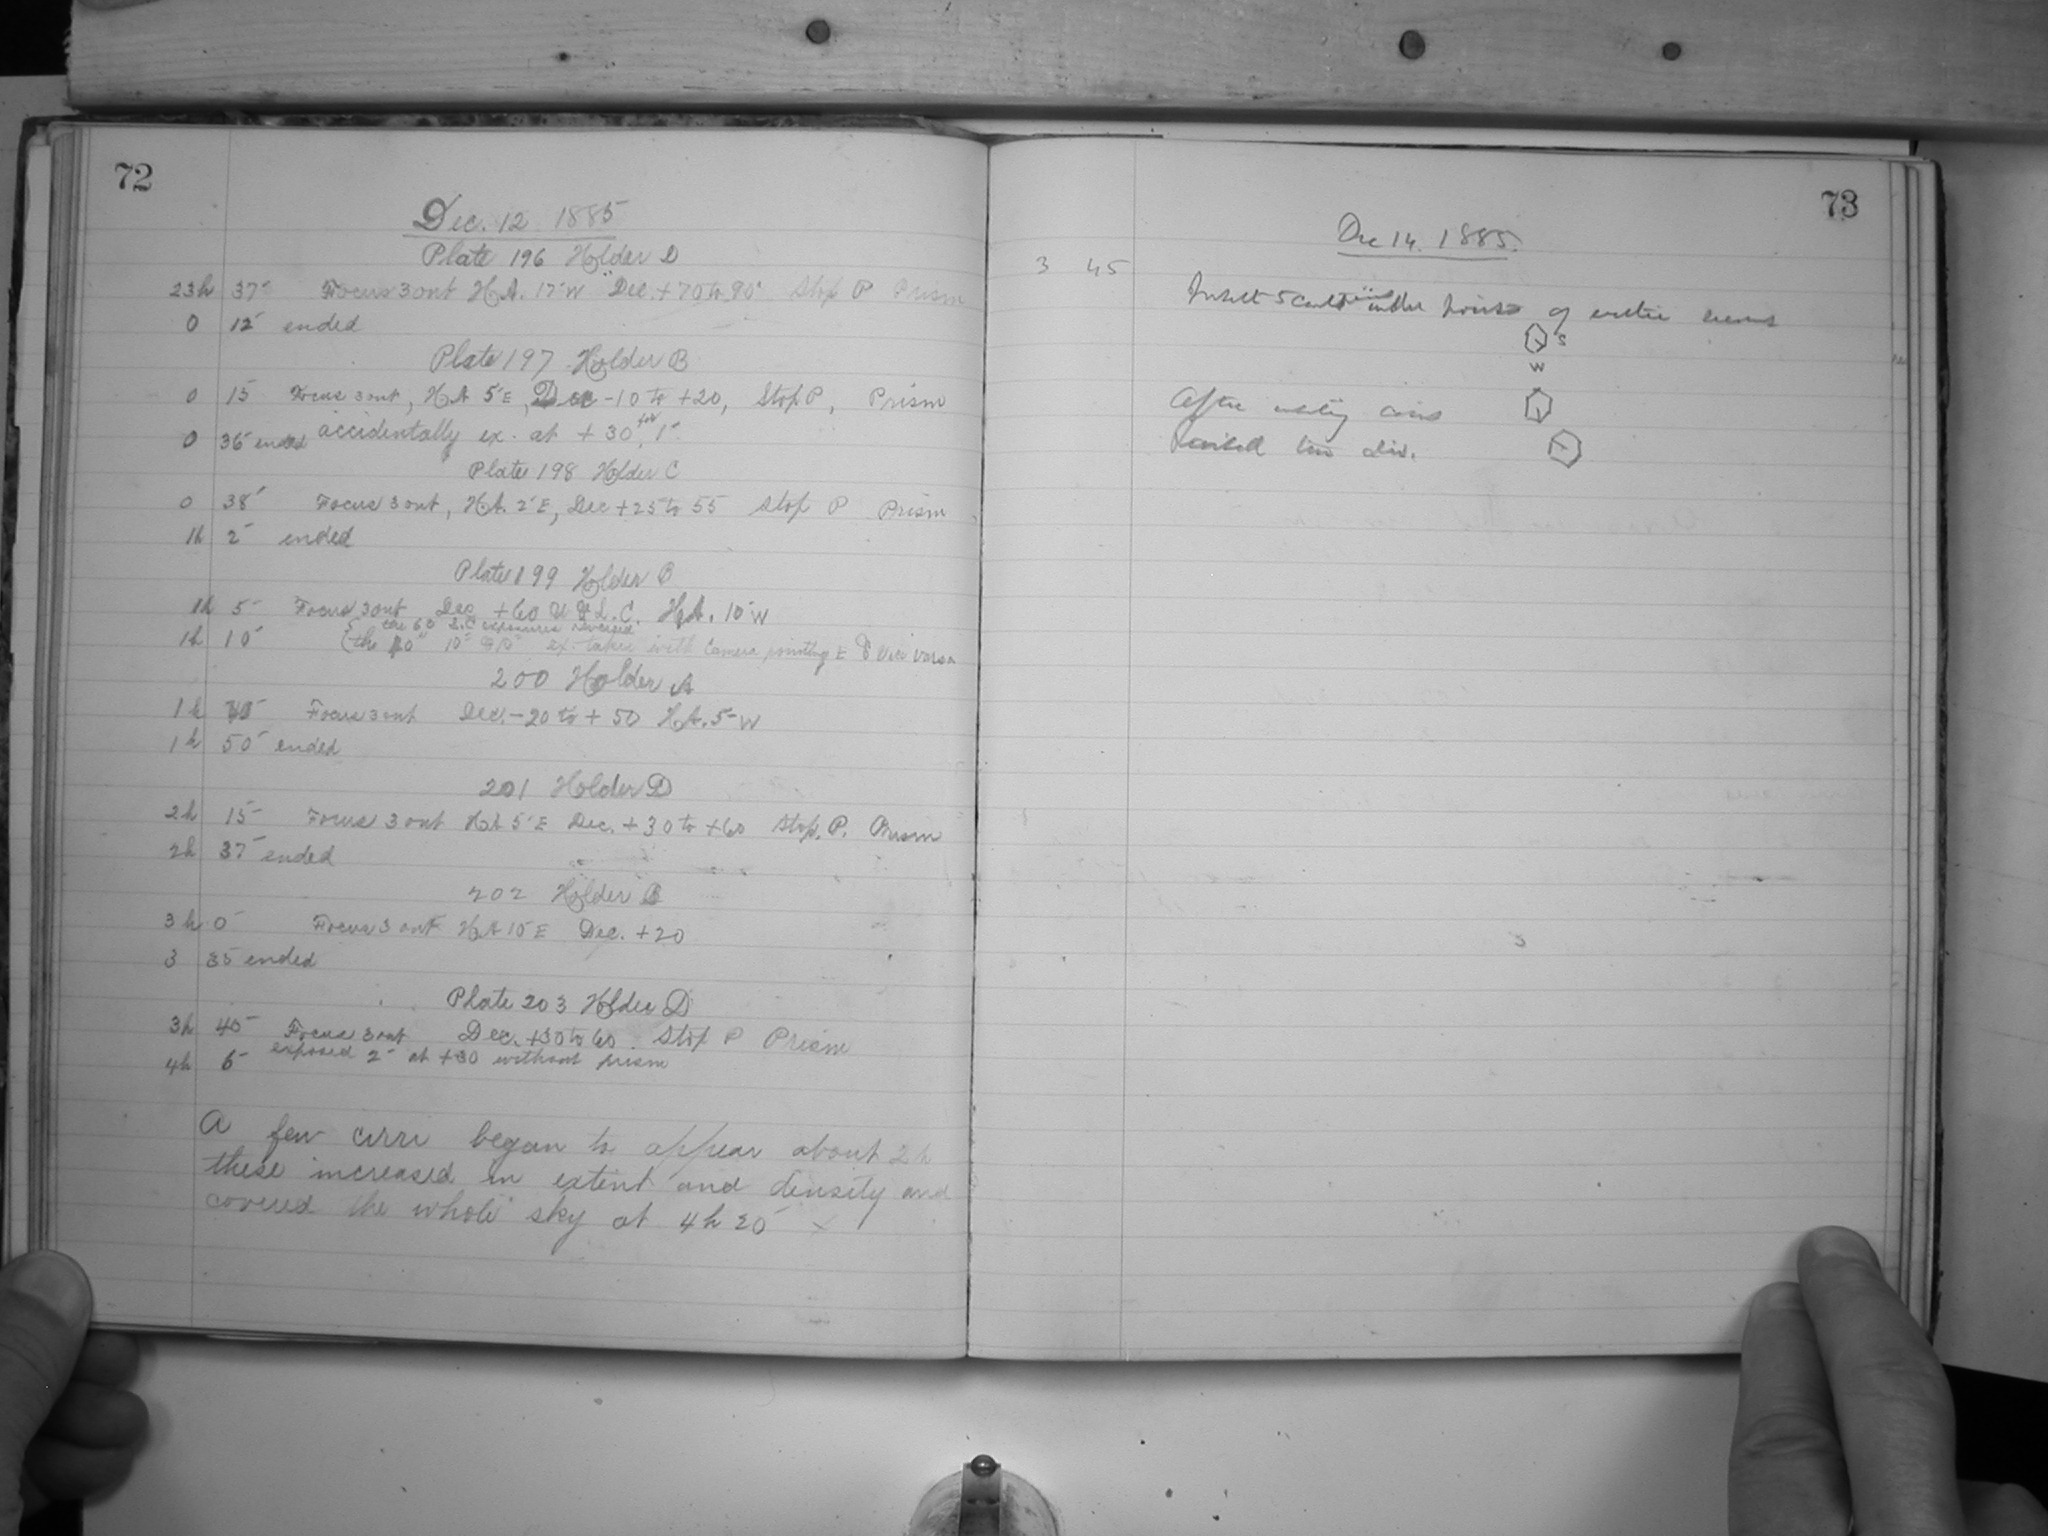 72
Dec. 12 1885
Plate 196 Holder D
23h 37- Focus 3 out H.A. 17-W Dec. +70 to 90° Stop P Prism
0 12- ended
Plate 197 Holder B
0 15 Focus 3 out, HA 5-E, Dec -10 to +20, Stop P, Prism
accidentally ex. at +30 for 1-
0 36- ended
Plate 198 Holder C
0 38- Focus 3 out, H.A. 2-E, Dec +25 to 55 Stop P Prism
1h 2- ended
Plate 199 Holder B
1h 5- Focus 3 out Dec +60 U & L.C. H.A. 10-W
the 60 L.C. exposures reversed
1h 10- (the 10- ex. taken with camera pointing E & vice versa
200 Holder A
1h Focus 3 out Dec. -20 to +50 H.A. 5-W
1h 50- ended
201 Holder D
2h 15- Focus 3 out HA 5-E Dec. +30 to +60 Stop. P. Prism
2h 37- ended
202 Holder B
3h 0- Focus 3 out HA 10-E Dec. +20
3 35 ended
Plate 203 Holder D
3h 40- Focus 3 out Dec. +30 to 60 Stop P Prism
exposed 2- at +30 without prism
4h 6-
A few cirri began to appear about 2h
these increased in extent and density and
covered the whole sky at 4h 20-
73
Dec 14. 1885.
3 45
of
S
W
After
two div.